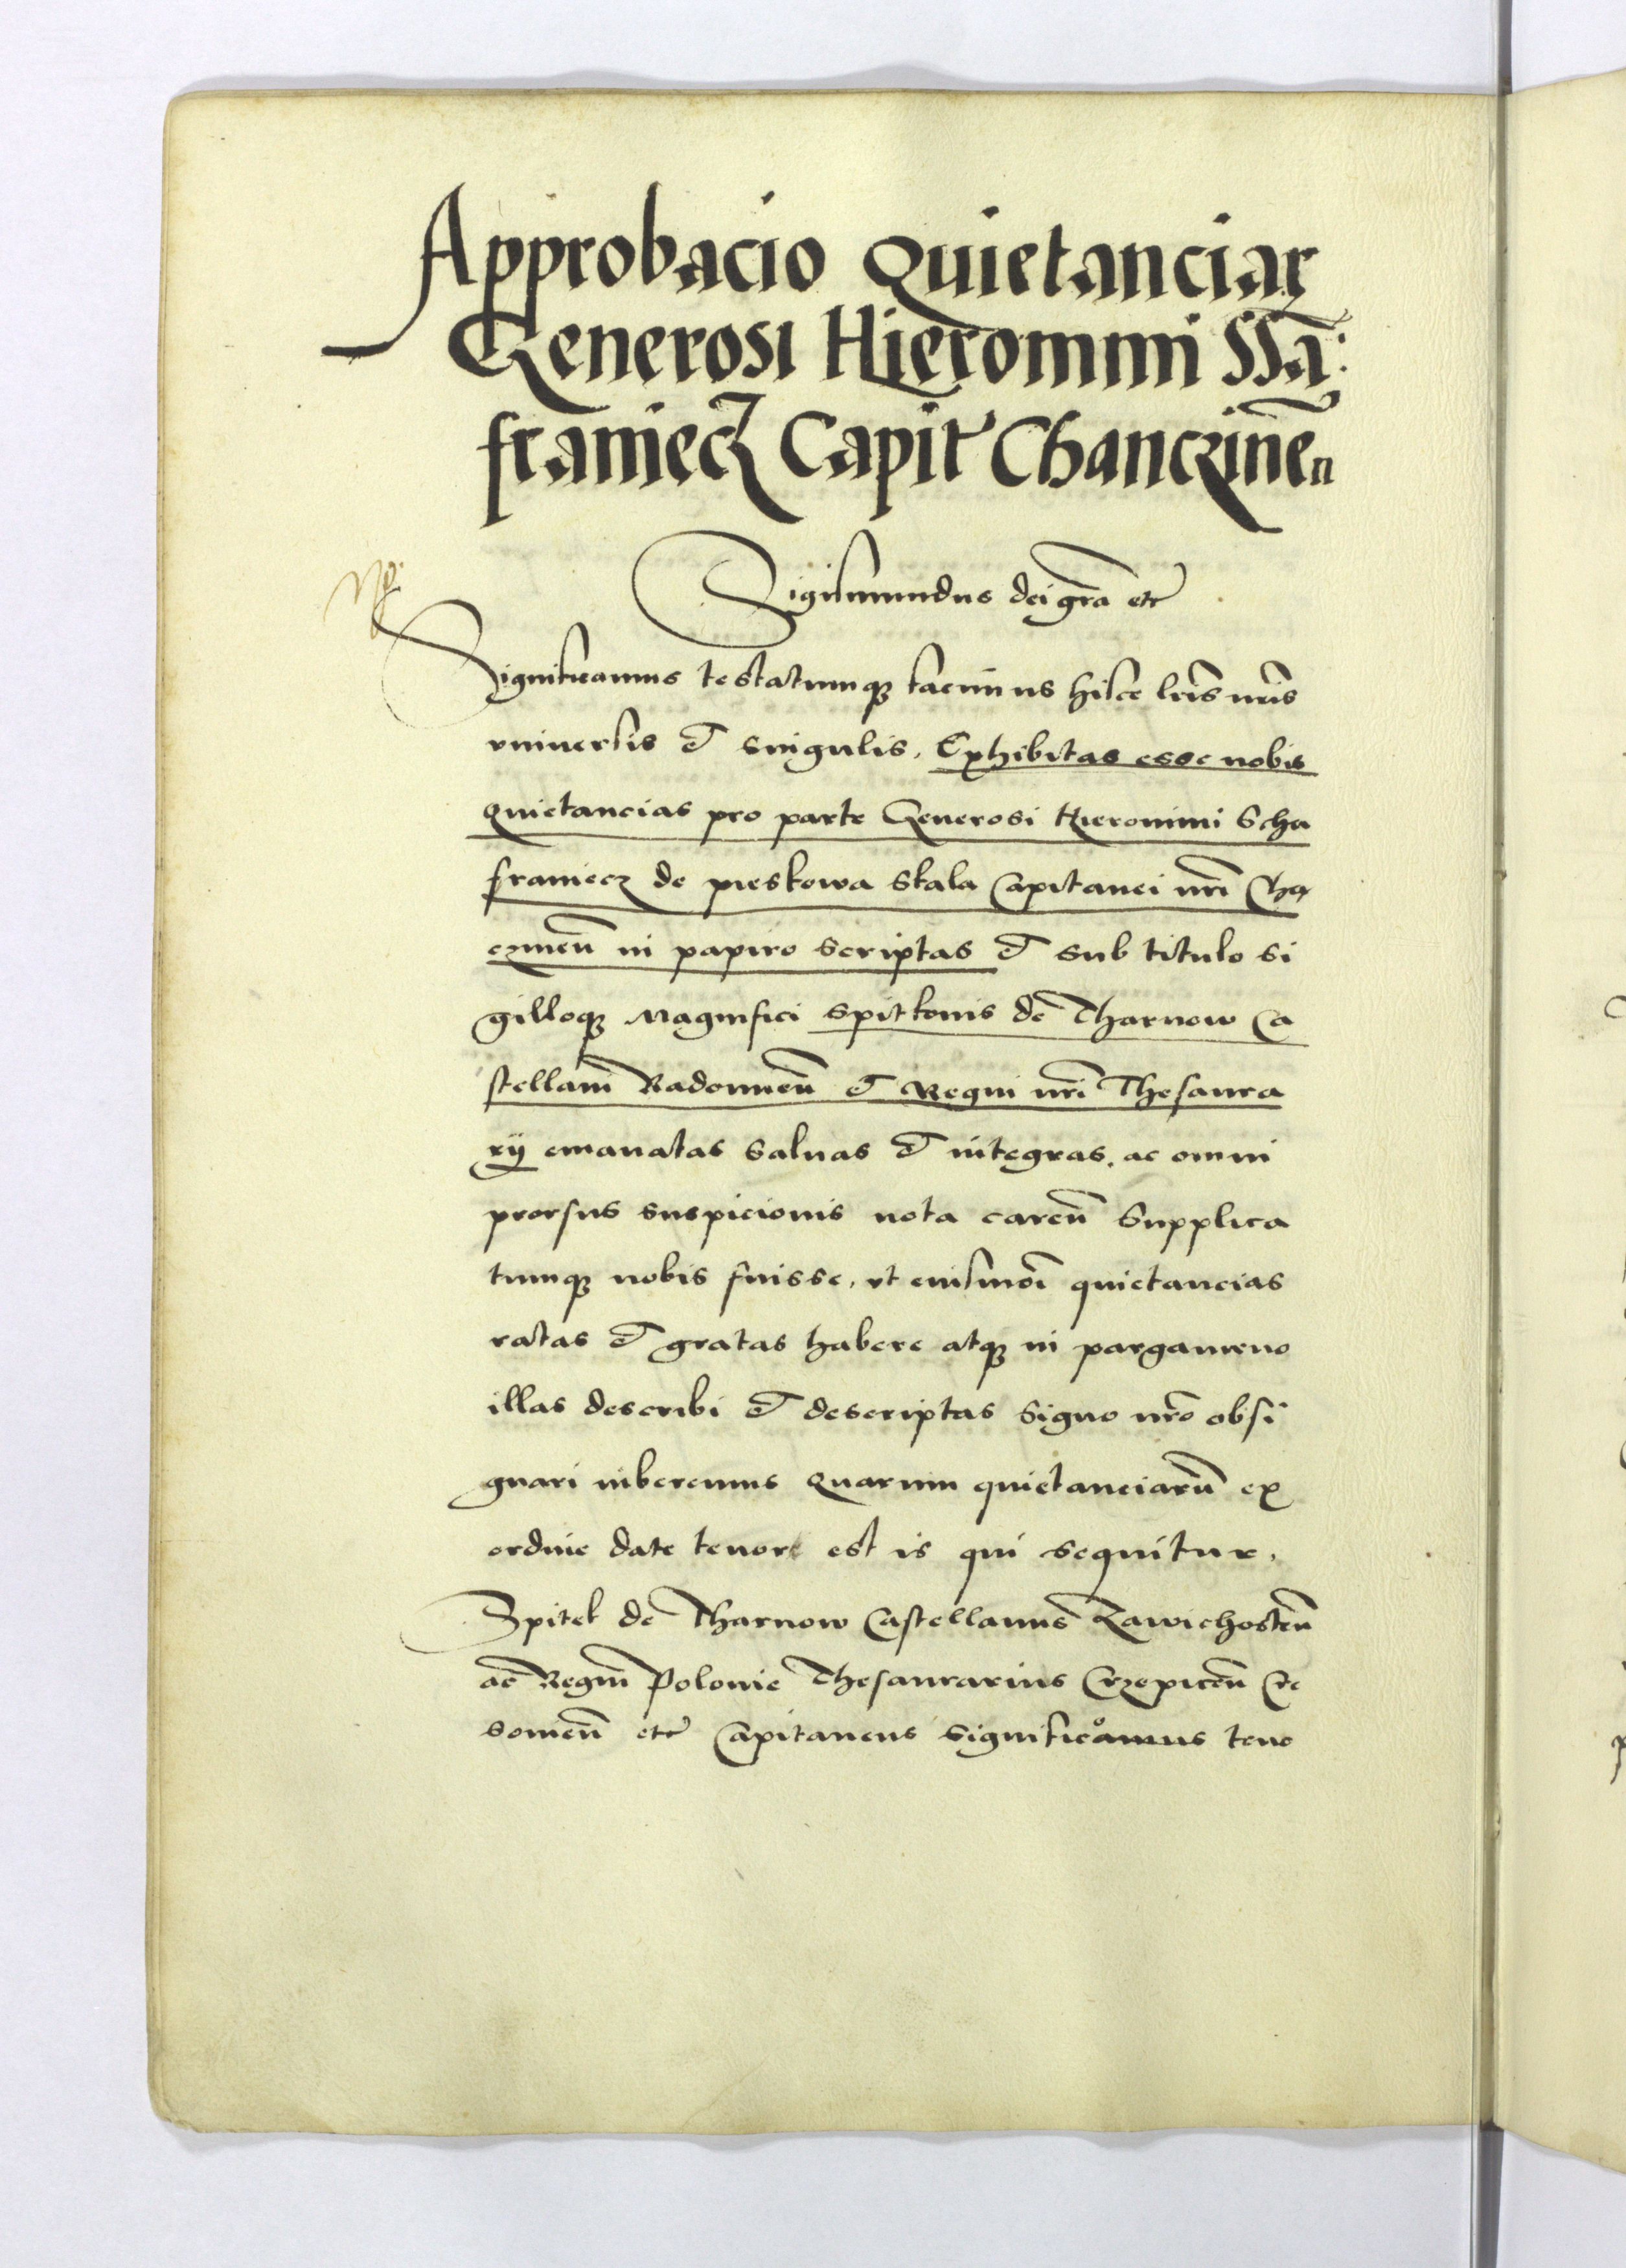 Approbacio Quietanciaꝝ
Generosi Hieronimi Ssa:
franiecz Capit Chanczineñ
Sigismundus dei gra etc
Significamus testatumqꝫ facimus hisce lris nris
vniuersis et singulis. Exhibitas esse nobis
quietancias pro parte Generosi Hieronimi Scha
franiecz de pieskowa Skala Capitanei nri Cha
czineñ in papiro scriptas et sub titulo si
gilloqꝫ Magnifici Spitkonis de Tharnow Ca
stellani Radomieñ et Regni nri Thesaura
rij emanatas saluas et integras. ac omni
prorsus suspicionis nota careñ Supplica
tumqꝫ nobis fuisse, vt eiusmoi quietancias
ratas et gratas habere atqꝫ in pargameno
illas describi et descriptas signo nro obsi
gnari iuberemus Quarum quietanciarū ex
ordine date tenor est is qui sequitur.
Spitek de Tharnow Castellanus Zawichosteñ
ac Regni Polonie Thesaurarius Crzepiceñ Cre
sonieñ etc Capitaneus significamus teno